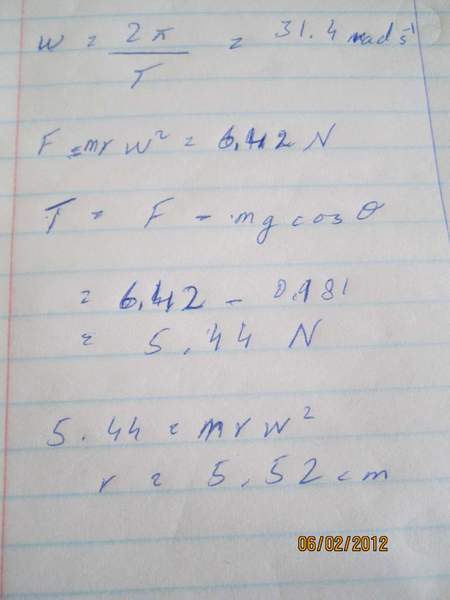 w = 2π / T = 31.4 rad s⁻¹
F = mrw² = 6.42 N
T = F - mg cos θ
= 6.42 - 0.981
= 5.44 N
5.44 = mrw²
r = 5.52 cm
06/02/2012